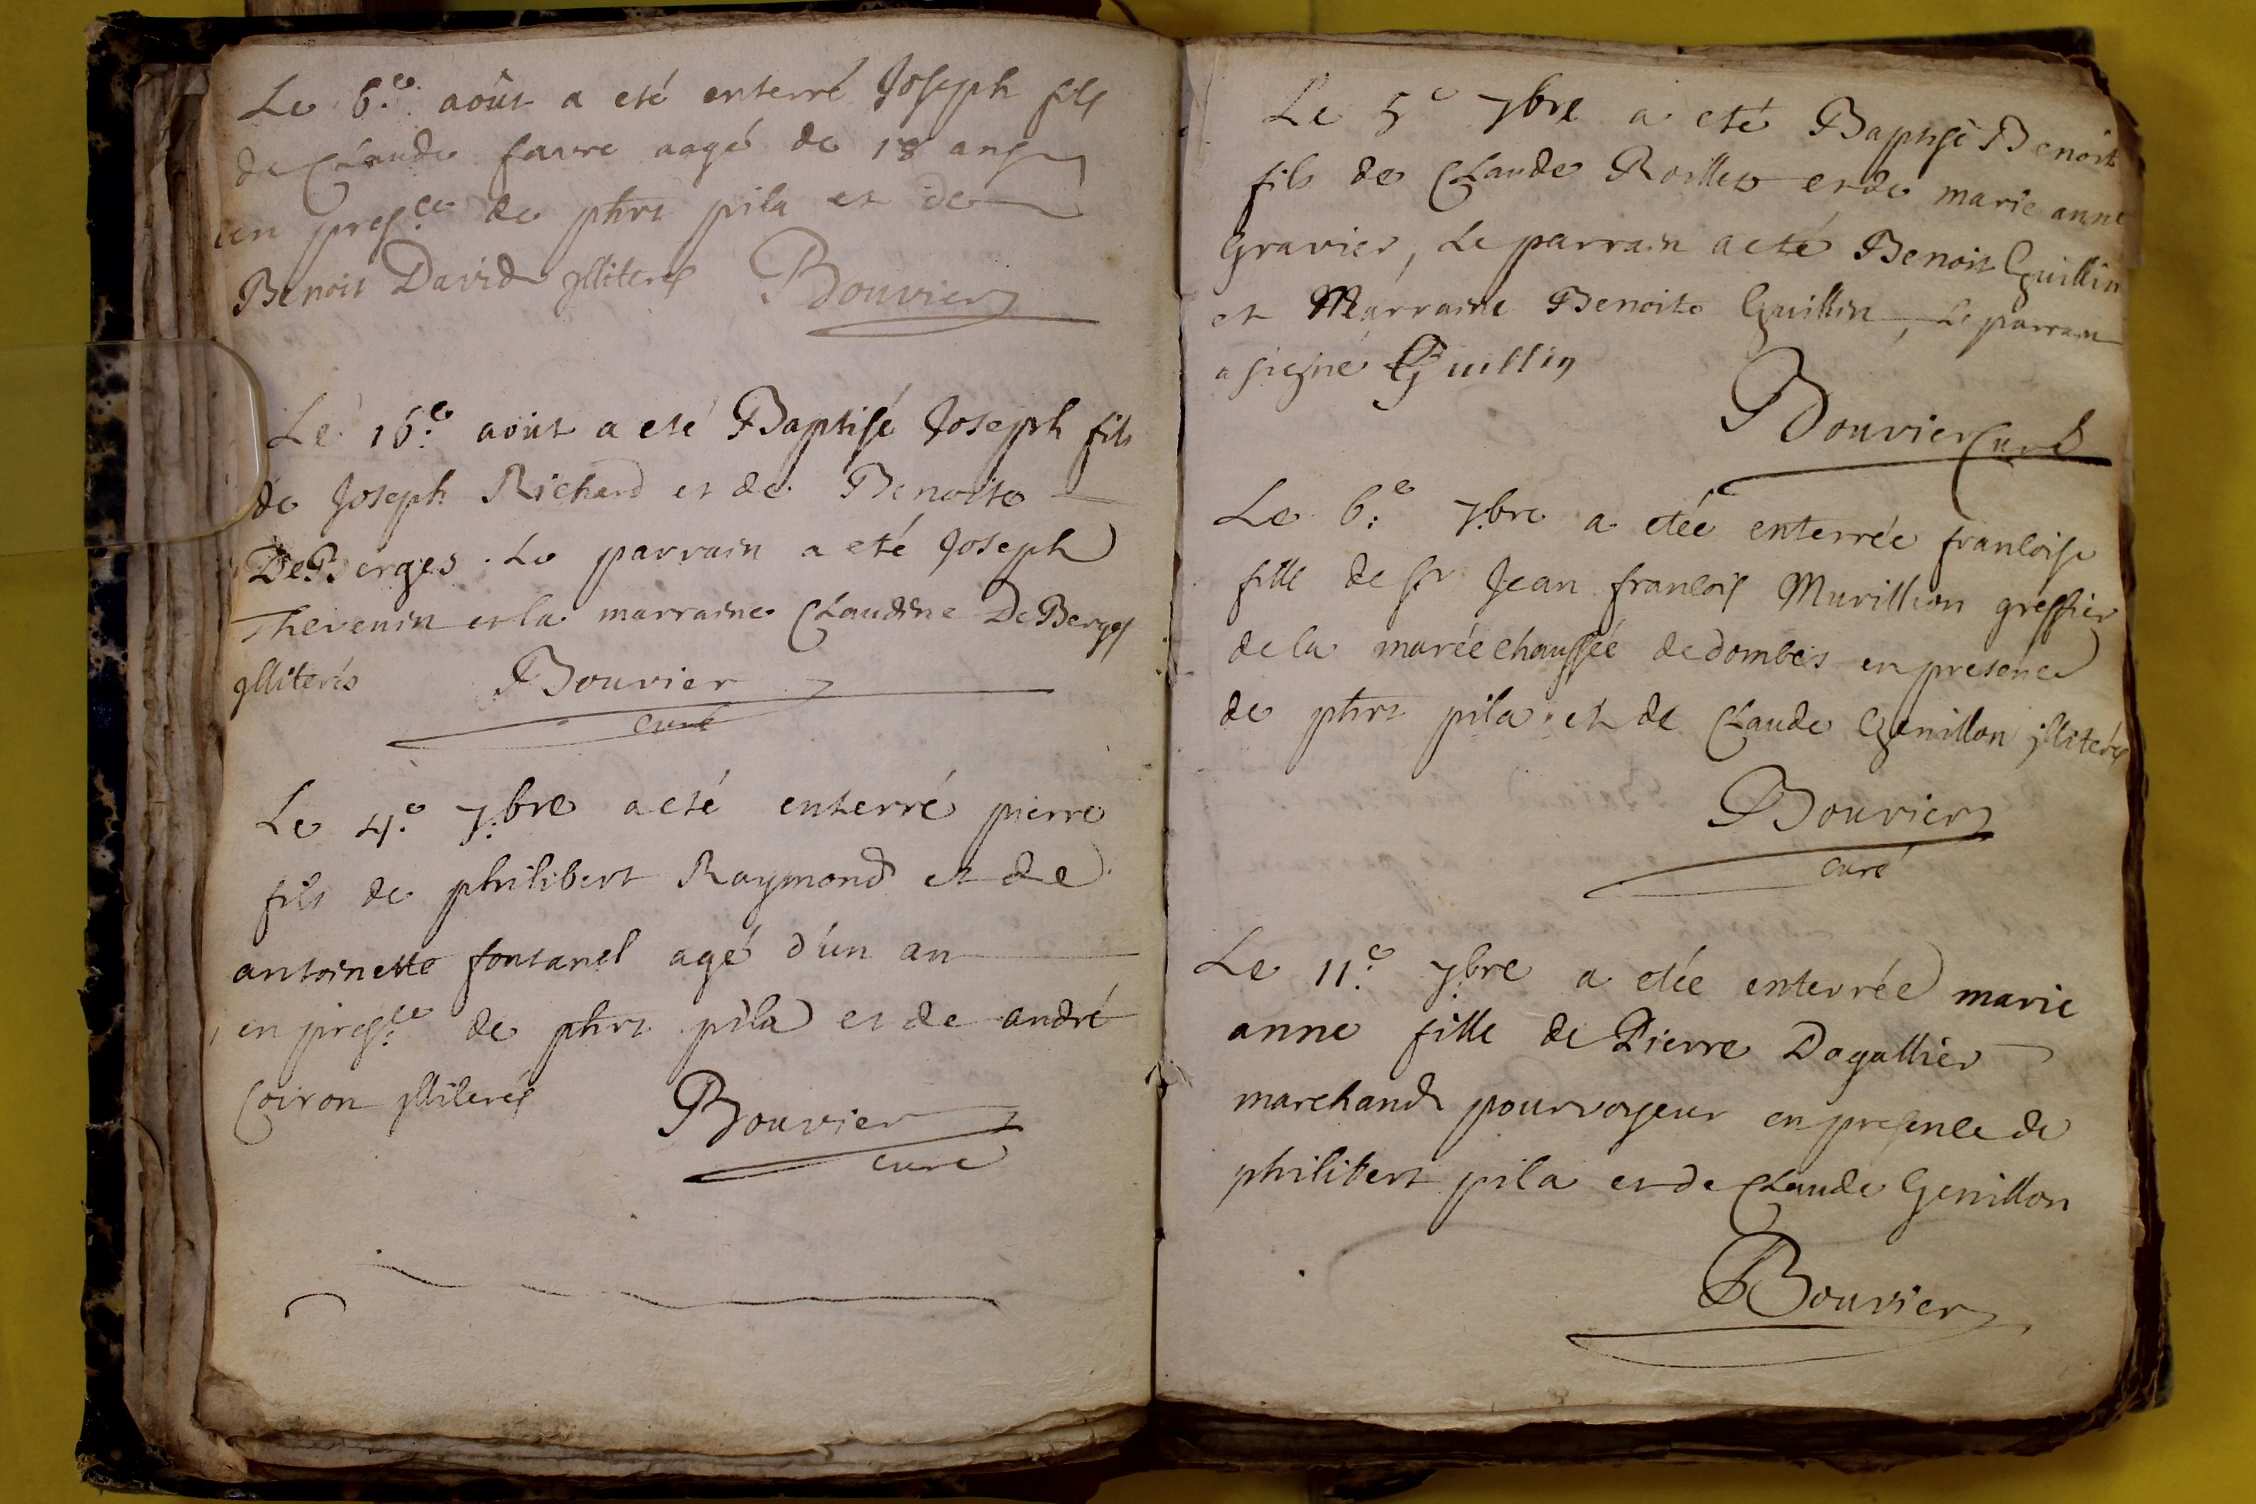 Le 6.e août a eté enterré Joseph fils
de Claude favre aagé de 18 ans
en presce de phrt pila et de
Benoit David jlliterés Bouvier
Le 16.e août a eté Baptisé Joseph fils
de Joseph Richard et de Benoite
DeBerges. Le parrain a eté Joseph
Thevenin et la marraine Claudine DeBerges
jlliterés Bouvier
curé
Le 4.e 7.bre a eté enterré pierre
fils de philibert Raymond et de
antoinette fontanel agé d'un an
en presce de phrt pila et de andré
Coiron jlliterés Bouvier
curé
Le 5e 7bre a eté Baptisé Benoit
fils de Claude Roillet et de marie anne
Gravier, Le parrain a eté Benoit Guillin
et Marraine Benoite Guillin, le parrain
a signé Guillin
Bouvier Curé
Le 6.e 7.bre a etée enterrée francoise
fille de sr Jean francois Muvillion greffier
de la marééchaussée de dombes en presence
de phrt pila et de Claude Genillon jlliterés
Bouvier
curé
Le 11.e 7.bre a etée enterrée marie
anne fille de Pierre Dagallier
marchand pourvoyeur en presence de
philibert pila et de Claude Genillon
Bouvier